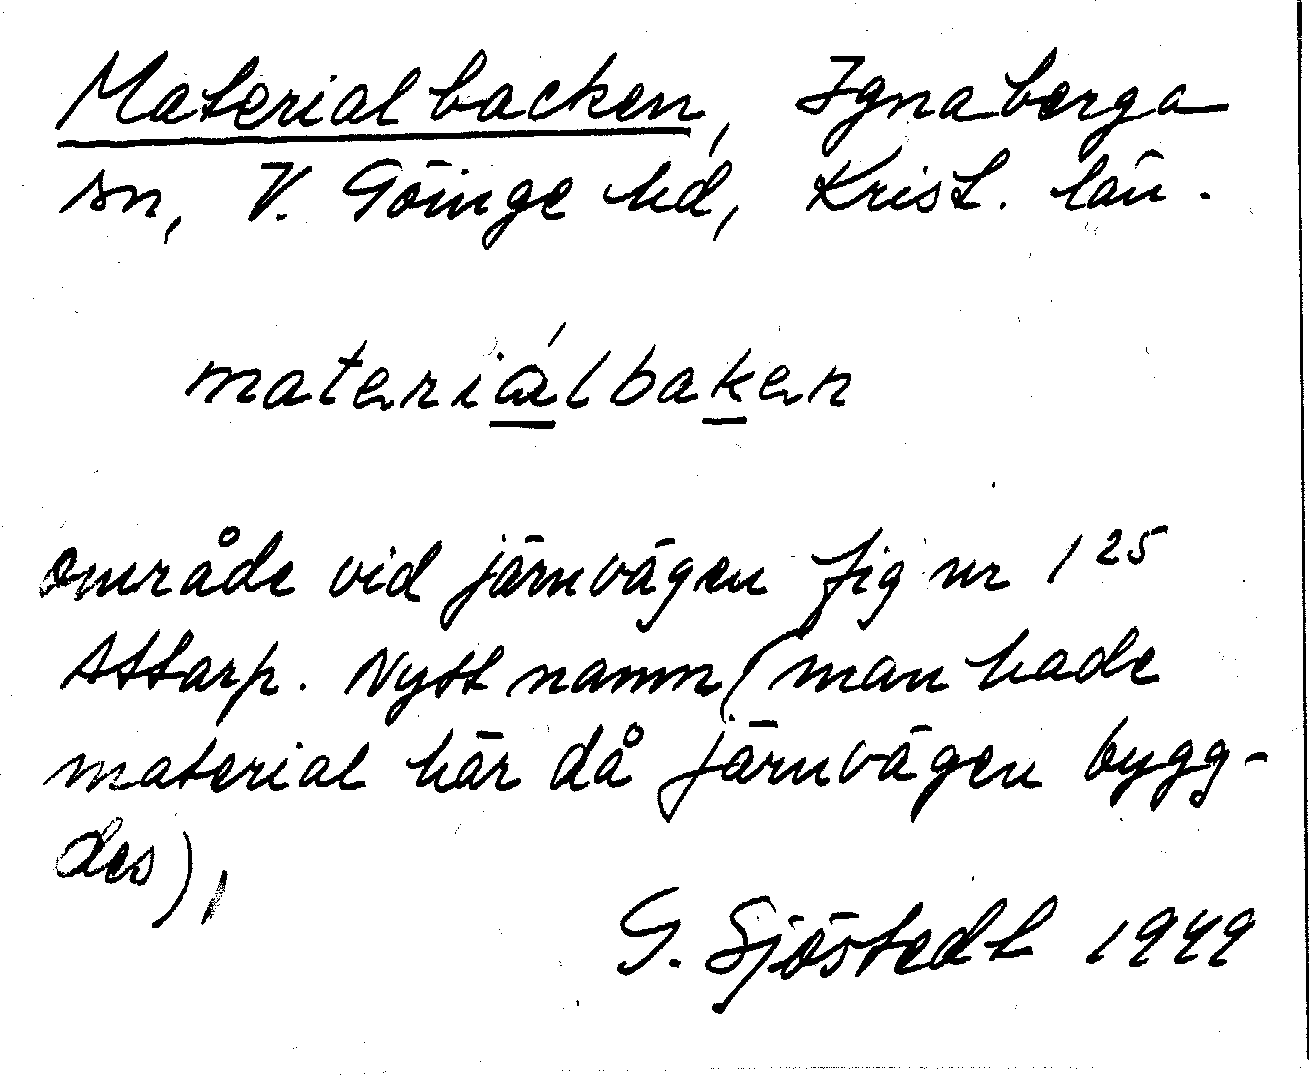 Materialbacken, Ignaberga
sn, V. Göinge hd, Krist. län.
materiálbaken
område vid järnvägen fig nr 1 25
Attarp. Nytt namn (man hade
material här då järnvägen bygg-
des),
G. Sjöstedt 1949